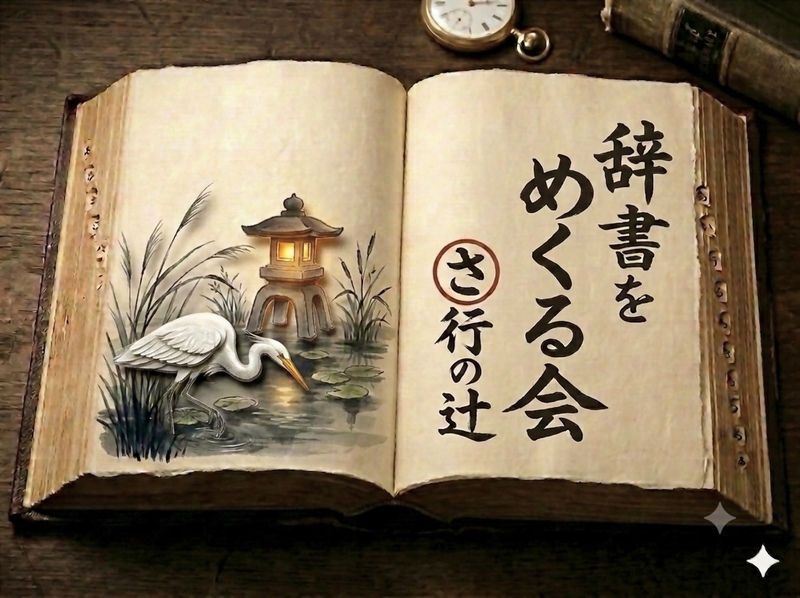 辞書を
めくる会
さ行の辻